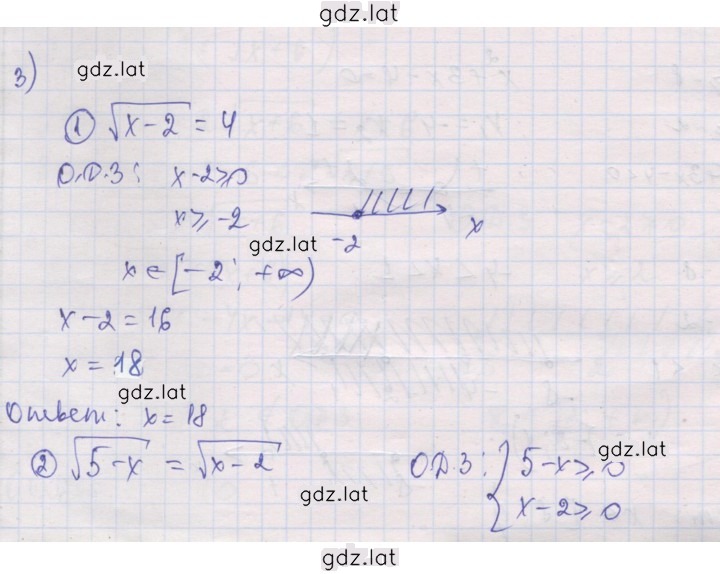 gdz.lat
3) gdz.lat
① √(x-2) = 4
О.D.З: x-2≥0
x≥-2
-2 x
gdz.lat
x ∈ [-2; +∞)
x-2=16
x=18
gdz.lat
Ответ: x=18
② √(5-x) = √(x-2) О.D.З: { 5-x≥0
gdz.lat
x-2≥0
gdz.lat
gdz.lat